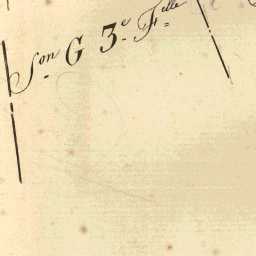 Son G 3e Felle